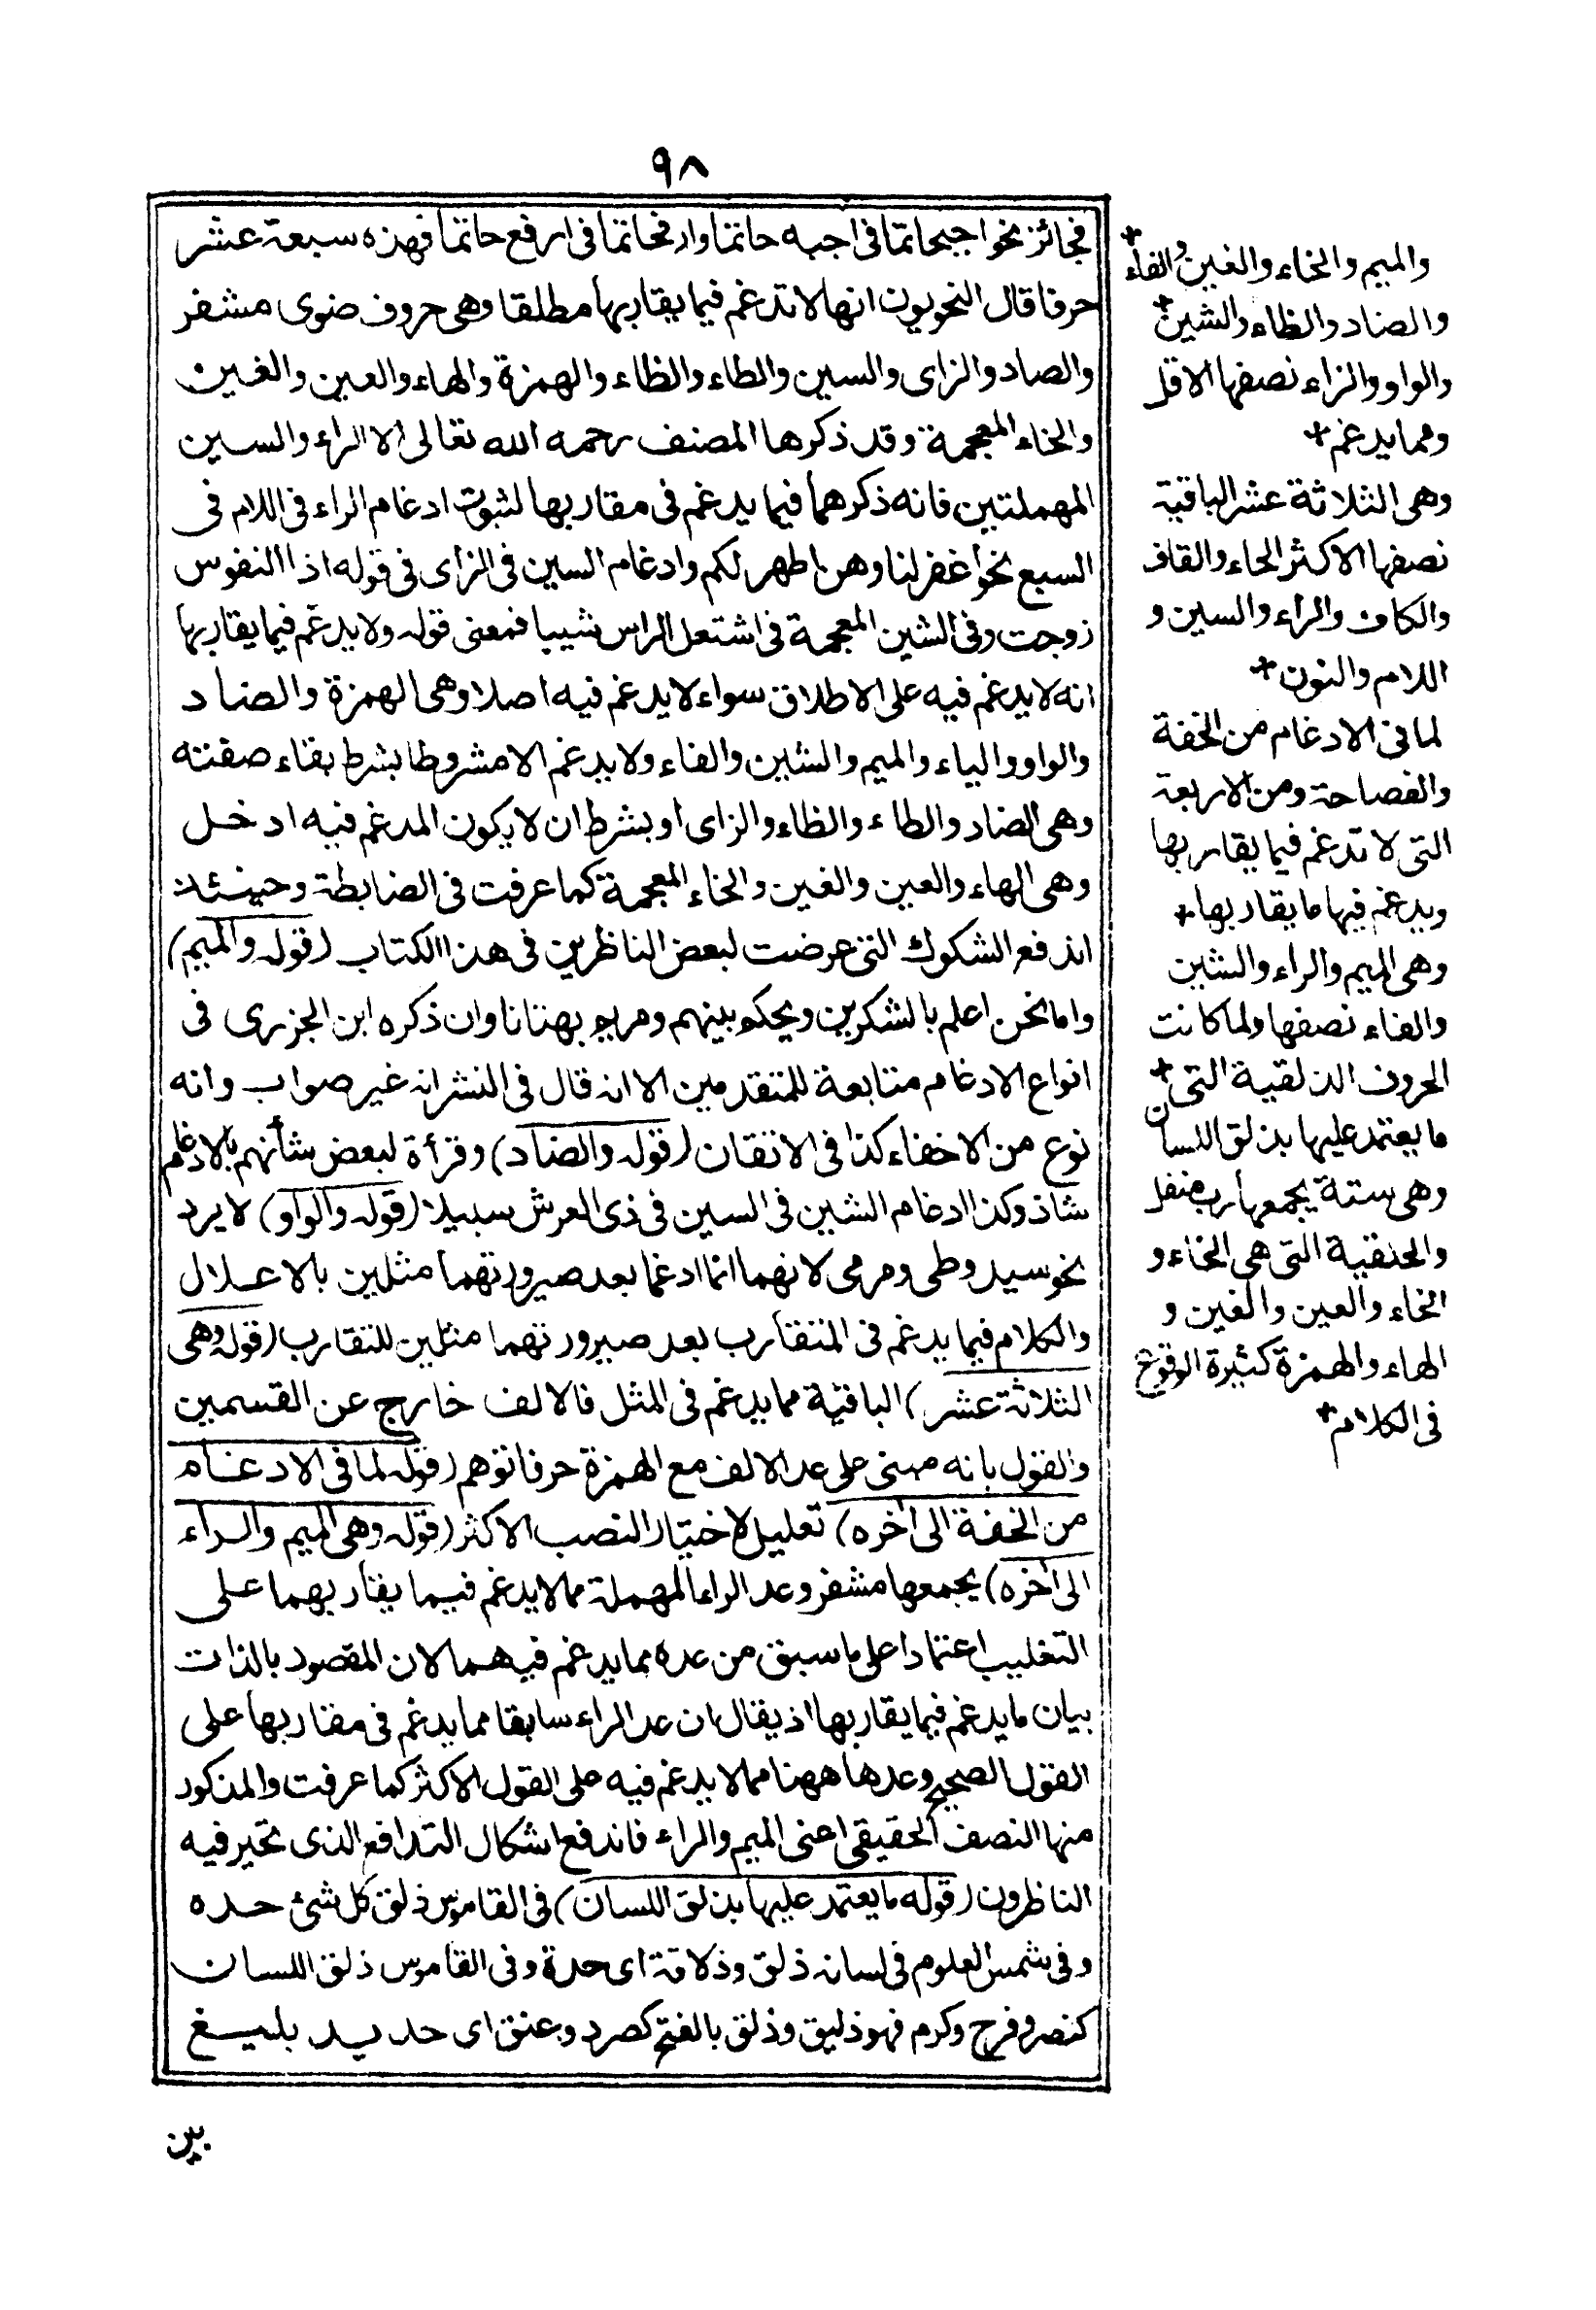 ٩٨
فجائز نحو اجبحاتما فى اجبه حاتما وارفحاتما فى ارفع حاتما فهذه سبعة عشر
حرفا قال النحويون انها لا تدغم فيما يقاربها مطلقا وهى حروف ضوى مشفر
والصاد والزاى والسين والطاء والظاء والهمزة والهاء والعين والغين
والخاء المعجمة وقد ذكرها المصنف رحمه الله تعالى الا الراء والسين
المهملتين فانه ذكرهما فيما يدغم فى مقاربها لثبوت ادغام الراء فى اللام فى
السبع نحو اغفر لنا وهن اطهر لكم وادغام السين فى الزاى فى قوله اذا النفوس
زوجت وفى الشين المعجمة فى اشتعل الراس شيبا فمعنى قوله ولا يدغم فيما يقاربها
انه لا يدغم فيه على الاطلاق سواء لا يدغم فيه اصلا وهى الهمزة والضاد
والواو والياء والميم والشين والفاء ولا يدغم الا مشروطا بشرط بقاء صفته
وهى الضاد والطاء والظاء والزاى او بشرط ان لا يكون المدغم فيه ادخل
وهى الهاء والعين والغين والخاء المعجمة كما عرفت فى الضابطة وحينئذ
اندفع الشكوك التى عرضت لبعض الناظرين فى هذا الكتاب (قوله والميم)
واما نحن اعلم بالشكرين ويحكم بينهم ومريم بهتانا وان ذكره ابن الجزرى فى
انواع الادغام متابعة للمتقدمين الا انه قال فى النشر انه غير صواب وانه
نوع من الاخفاء كذا فى الاتقان (قوله والضاد) وقرأة لبعض شأنهم بالادغام
شاذ وكذا ادغام الشين فى السين فى ذى العرش سبيلا (قوله والواو) لا يرد
نحو سيد وطى ومرمى لانهما انما ادغما بعد صيرورتهما مثلين بالاعلال
والكلام فيما يدغم فى المتقارب بعد صيرورتهما مثلين للتقارب (قوله وهى
الثلاثة عشر) الباقية مما يدغم فى المثل فالالف خارج عن القسمين
والقول بانه مبنى على عد الالف مع الهمزة حرفا توهم (قوله لما فى الادغام
من الخفة الى آخره) تعليل لاختيار النصب الاكثر (قوله وهى الميم والراء
الى آخره) يجمعها مشفر وعد الراء المهملة مما لا يدغم فيما يقاربهما على
التغليب اعتمادا على ما سبق من عده مما يدغم فيهما لان المقصود بالذات
بيان ما يدغم فيما يقاربها اذ يقال ان عد الراء سابقا مما يدغم فى مقاربها على
القول الصحيح وعدها ههنا مما لا يدغم فيه على القول الاكثر كما عرفت والمذكور
منها النصف الحقيقى اعنى الميم والراء فاندفع اشكال التدافع الذى تحير فيه
الناظرون (قوله ما يعتمد عليها بذلق اللسان) فى القاموس ذلق كل شئ حده
وفى شمس العلوم فى لسانه ذلق وذلاقة اى حدة وفى القاموس ذلق اللسان
كنصر وفرح وكرم فهو ذليق وذلق بالفتح كصرد وعنق اى حديد بليغ
والميم والخاء والغين والفاء +
والضاد والظاء والشين +
والواو والزاء نصفها الاقل
ومما يدغم +
وهى الثلاثة عشر الباقية
نصفها الاكثر الحاء والقاف
والكاف والراء والسين و
اللام والنون +
لما فى الادغام من الخفة
والفصاحة ومن الاربعة
التى لا تدغم فيما يقاربها
ويدغم فيها ما يقاربها +
وهى الميم والراء والشين
والفاء نصفها ولما كانت
الحروف الذلقية التى +
ما يعتمد عليها بذلق اللسان
وهى ستة يجمعها رب منفل
والحلقية التى هى الحاء و
الخاء والعين والغين و
الهاء والهمزة كثيرة الوقوع
فى الكلام +
بين